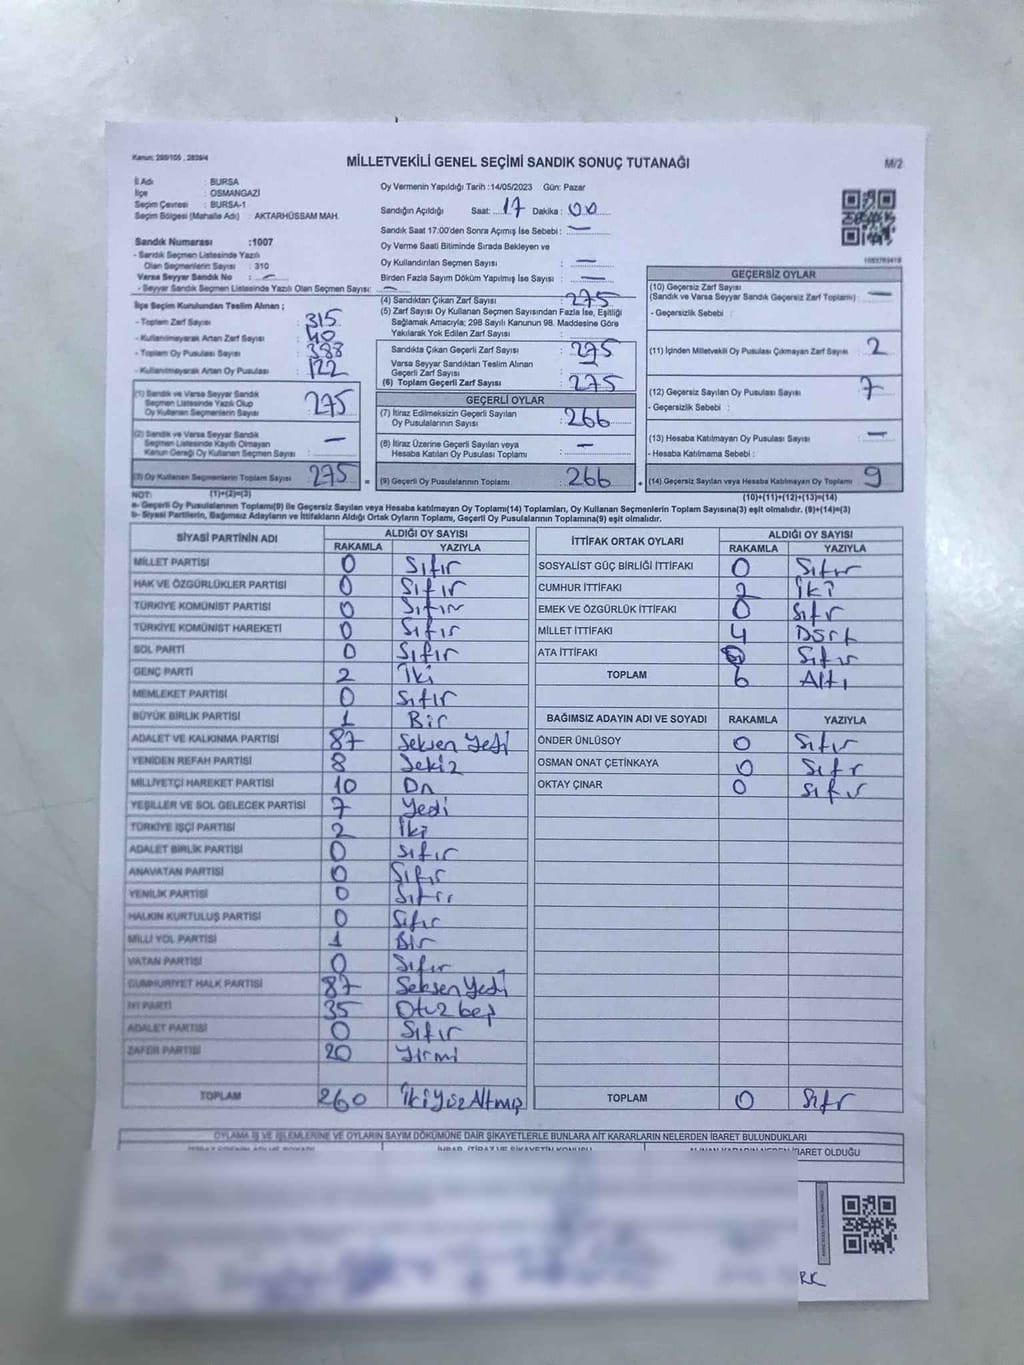 Kanun: 298/105 , 2839/4
MİLLETVEKİLİ GENEL SEÇİMİ SANDIK SONUÇ TUTANAĞI
M/2
İl Adı : BURSA
İlçe : OSMANGAZİ
Seçim Çevresi : BURSA-1
Seçim Bölgesi (Mahalle Adı) : AKTARHÜSSAM MAH.
Sandık Numarası :1007
- Sandık Seçmen Listesinde Yazılı
Olan Seçmenlerin Sayısı : 310
Varsa Seyyar Sandık No : —
- Seyyar Sandık Seçmen Listesinde Yazılı Olan Seçmen Sayısı: —
İlçe Seçim Kurulundan Teslim Alınan ;
- Toplam Zarf Sayısı : 315
- Kullanılmayarak Artan Zarf Sayısı : 40
- Toplam Oy Pusulası Sayısı : 388
- Kullanılmayarak Artan Oy Pusulası : 122
(1) Sandık ve Varsa Seyyar Sandık
Seçmen Listesinde Yazılı Olup
Oy Kullanan Seçmenlerin Sayısı : 275
(2) Sandık ve Varsa Seyyar Sandık
Seçmen Listesinde Kayıtlı Olmayan
Kanun Gereği Oy Kullanan Seçmen Sayısı : —
(3) Oy Kullanan Seçmenlerin Toplam Sayısı : 275
Oy Vermenin Yapıldığı Tarih :14/05/2023 Gün: Pazar
Sandığın Açıldığı Saat: 17 Dakika : 00
Sandık Saat 17:00'den Sonra Açımış İse Sebebi : —
Oy Verme Saati Bitiminde Sırada Bekleyen ve
Oy Kullandırılan Seçmen Sayısı : —
Birden Fazla Sayım Döküm Yapılmış İse Sayısı : —
(4) Sandıktan Çıkan Zarf Sayısı : 275
(5) Zarf Sayısı Oy Kullanan Seçmen Sayısından Fazla İse, Eşitliği
Sağlamak Amacıyla; 298 Sayılı Kanunun 98. Maddesine Göre
Yakılarak Yok Edilen Zarf Sayısı :
Sandıkta Çıkan Geçerli Zarf Sayısı : 275
Varsa Seyyar Sandıktan Teslim Alınan
Geçerli Zarf Sayısı : —
(6) Toplam Geçerli Zarf Sayısı : 275
GEÇERLİ OYLAR
(7) İtiraz Edilmeksizin Geçerli Sayılan
Oy Pusulalarının Sayısı : 266
(8) İtiraz Üzerine Geçerli Sayılan veya
Hesaba Katılan Oy Pusulası Toplamı : —
= (9) Geçerli Oy Pusulalarının Toplamı : 266 +
GEÇERSİZ OYLAR
(10) Geçersiz Zarf Sayısı
(Sandık ve Varsa Seyyar Sandık Geçersiz Zarf Toplamı) : —
- Geçersizlik Sebebi :
(11) İçinden Milletvekili Oy Pusulası Çıkmayan Zarf Sayısı : 2
(12) Geçersiz Sayılan Oy Pusulası Sayısı : 7
- Geçersizlik Sebebi :
(13) Hesaba Katılmayan Oy Pusulası Sayısı : —
- Hesaba Katılmama Sebebi :
(14) Geçersiz Sayılan veya Hesaba Katılmayan Oy Toplamı : 9
NOT: (1)+(2)=(3) (10)+(11)+(12)+(13)=(14)
a- Geçerli Oy Pusulalarının Toplamı(9) ile Geçersiz Sayılan veya Hesaba katılmayan Oy Toplamı(14) Toplamları, Oy Kullanan Seçmenlerin Toplam Sayısına(3) eşit olmalıdır. (9)+(14)=(3)
b- Siyasi Partilerin, Bağımsız Adayların ve İttifakların Aldığı Ortak Oyların Toplamı, Geçerli Oy Pusulalarının Toplamına(9) eşit olmalıdır.
SİYASİ PARTİNİN ADI ALDIĞI OY SAYISI
RAKAMLA YAZIYLA
MİLLET PARTİSİ 0 Sıfır
HAK VE ÖZGÜRLÜKLER PARTİSİ 0 Sıfır
TÜRKİYE KOMÜNİST PARTİSİ 0 Sıfır
TÜRKİYE KOMÜNİST HAREKETİ 0 Sıfır
SOL PARTİ 0 Sıfır
GENÇ PARTİ 2 İki
MEMLEKET PARTİSİ 0 Sıfır
BÜYÜK BİRLİK PARTİSİ 1 Bir
ADALET VE KALKINMA PARTİSİ 87 Seksen Yedi
YENİDEN REFAH PARTİSİ 8 Sekiz
MİLLİYETÇİ HAREKET PARTİSİ 10 On
YEŞİLLER VE SOL GELECEK PARTİSİ 7 Yedi
TÜRKİYE İŞÇİ PARTİSİ 2 İki
ADALET BİRLİK PARTİSİ 0 Sıfır
ANAVATAN PARTİSİ 0 Sıfır
YENİLİK PARTİSİ 0 Sıfır
HALKIN KURTULUŞ PARTİSİ 0 Sıfır
MİLLİ YOL PARTİSİ 1 Bir
VATAN PARTİSİ 0 Sıfır
CUMHURİYET HALK PARTİSİ 87 Seksen Yedi
İYİ PARTİ 35 Otuz beş
ADALET PARTİSİ 0 Sıfır
ZAFER PARTİSİ 20 Yirmi
TOPLAM 260 İki Yüz Altmış
İTTİFAK ORTAK OYLARI ALDIĞI OY SAYISI
RAKAMLA YAZIYLA
SOSYALİST GÜÇ BİRLİĞİ İTTİFAKI 0 Sıfır
CUMHUR İTTİFAKI 2 İki
EMEK VE ÖZGÜRLÜK İTTİFAKI 0 Sıfır
MİLLET İTTİFAKI 4 Dört
ATA İTTİFAKI 0 Sıfır
TOPLAM 6 Altı
BAĞIMSIZ ADAYIN ADI VE SOYADI RAKAMLA YAZIYLA
ÖNDER ÜNLÜSOY 0 Sıfır
OSMAN ONAT ÇETİNKAYA 0 Sıfır
OKTAY ÇINAR 0 Sıfır
TOPLAM 0 Sıfır
OYLAMA İŞ VE İŞLEMLERİNE VE OYLARIN SAYIM DÖKÜMÜNE DAİR ŞİKAYETLERLE BUNLARA AİT KARARLARIN NELERDEN İBARET BULUNDUKLARI
İBARET OLDUĞU
RK